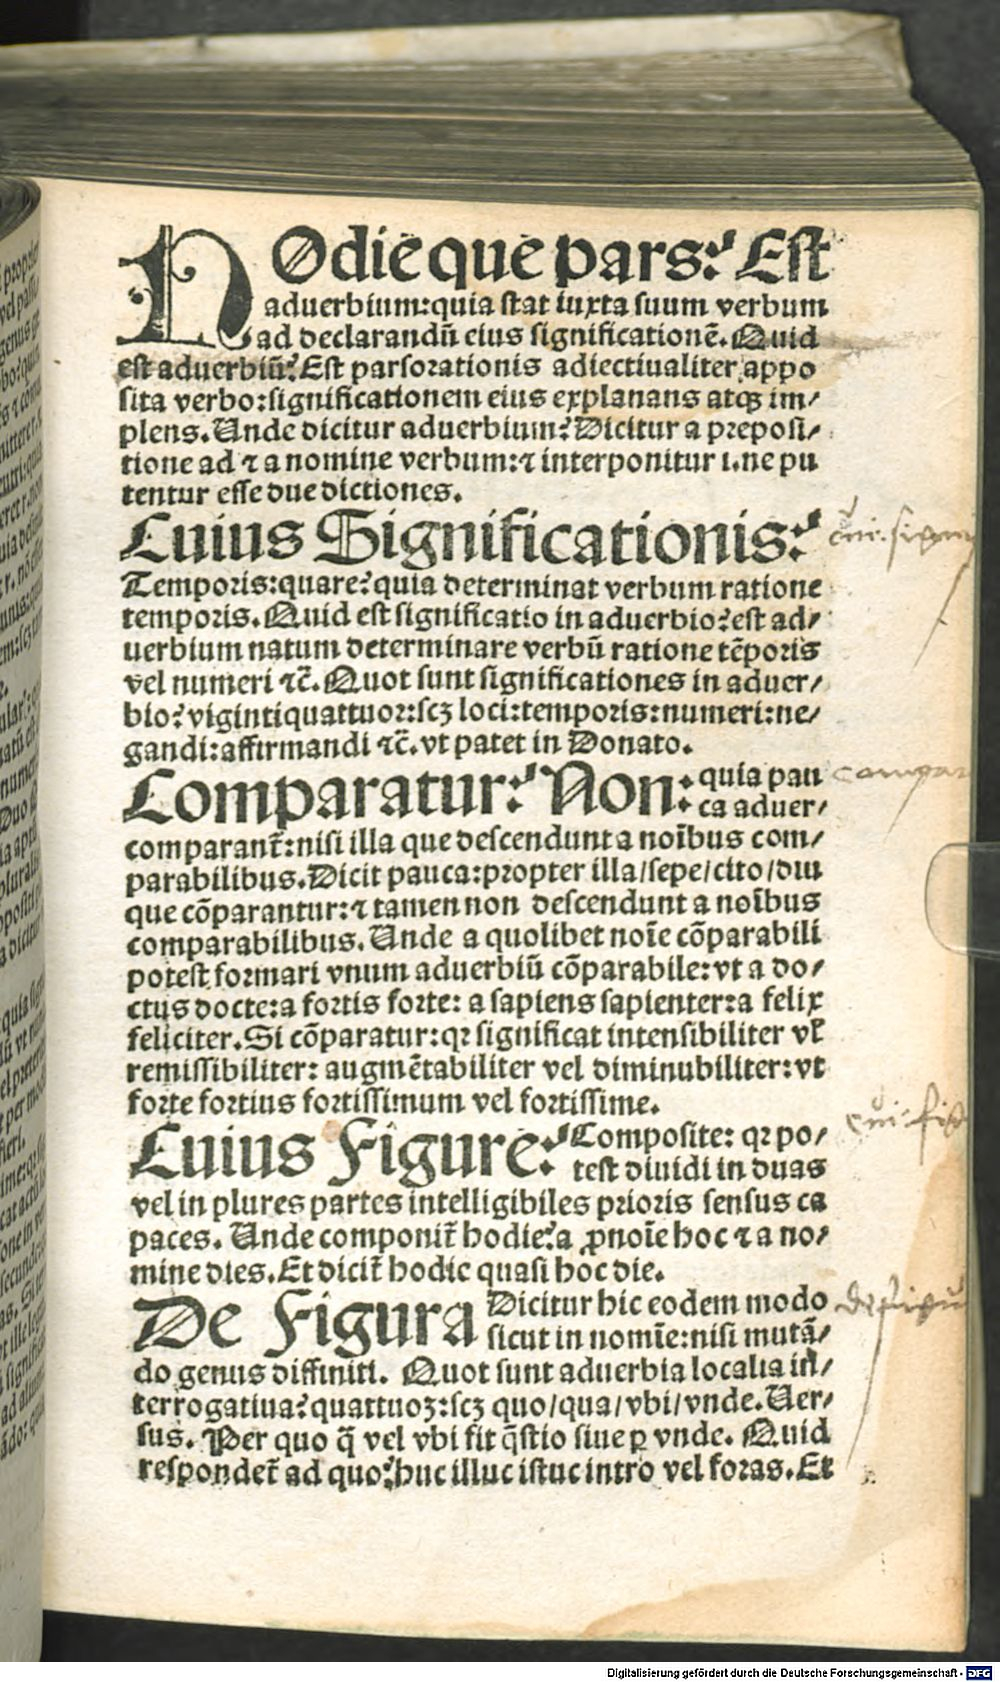 HOdie que pars? Est
aduerbium:quia stat iuxta suum verbum
ad declarandū eius significationē. Quid
est aduerbiū? Est parsorationis adiectiualiter appo
sita verbo:significationem eius explanans atqꝫ im⸗
plens. Unde dicitur aduerbium? Dicitur a preposi⸗
tione ad ⁊ a nomine verbum:⁊ interponitur i.ne pu
tentur esse due dictiones.
Cuius Significationis?
cui. signi
Temporis:quare? quia determinat verbum ratione
temporis. Quid est significatio in aduerbio? est ad⸗
uerbium natum determinare verbū ratione tēporis
vel numeri ⁊c̄. Quot sunt significationes in aduer⸗
bio? vigintiquattuor:scꝫ loci:temporis:numeri:ne⸗
gandi:affirmandi ⁊c̄. vt patet in Donato.
Comparatur? Non: quia pau
compar
ca aduer⸗
comparant̄:nisi illa que descendunt a noībus com⸗
parabilibus. Dicit pauca:propter illa/sepe/cito/diu
que cōparantur:⁊ tamen non descendunt a noībus
comparabilibus. Unde a quolibet noīe cōparabili
potest formari vnum aduerbiū cōparabile:vt a do⸗
ctus docte:a fortis forte: a sapiens sapienter:a felix
feliciter. Si cōparatur:qꝛ significat intensibiliter vl̄
remissibiliter: augmētabiliter vel diminubiliter:vt
forte fortius fortissimum vel fortissime.
Cuius Figure? Composite: qꝛ po⸗
cui. fig
test diuidi in duas
vel in plures partes intelligibiles prioris sensus ca
paces. Unde componit̄ hodie? a ꝓnoīe hoc ⁊ a no⸗
mine dies. Et dicit̄ hodie quasi hoc die.
De Figura Dicitur hic eodem modo
de figu
sicut in nomīe:nisi mutā⸗
do genus diffiniti. Quot sunt aduerbia localia in⸗
terrogatiua? quattuoꝛ:scꝫ quo/qua/vbi/vnde. Uer⸗
sus. Per quo q̄ vel vbi fit q̄stio siue ꝑ vnde. Quid
respondet̄ ad quo? huc illuc istuc intro vel foras. Et
Digitalisierung gefördert durch die Deutsche Forschungsgemeinschaft - DFG